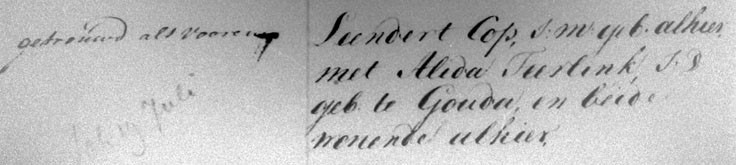 getrouwd als vooren
Leendert Cop, j: m: geb. alhier,
met Alida Teerlink, J: D
geb. te Gouda, en beide
wonende alhier,
19 Juli